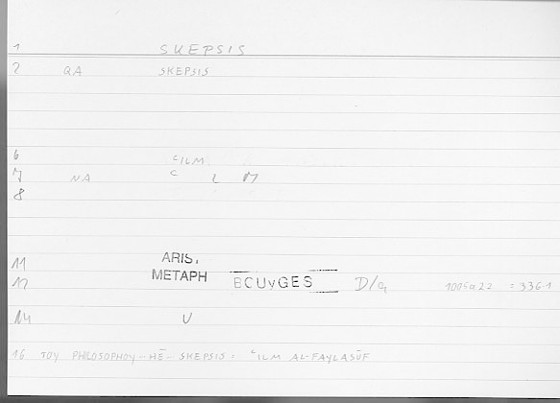 1 SKEPSIS
2 QA SKEPSIS
6 ʿILM
7 NA ʿ L M
8
11 ARIS.
12 METAPH BOUYGES D/G 1005a22 = 336.1
14 U
16 TOY PHILOSOPHOY-HĒ-SKEPSIS = ʿILM AL-FAYLASŪF